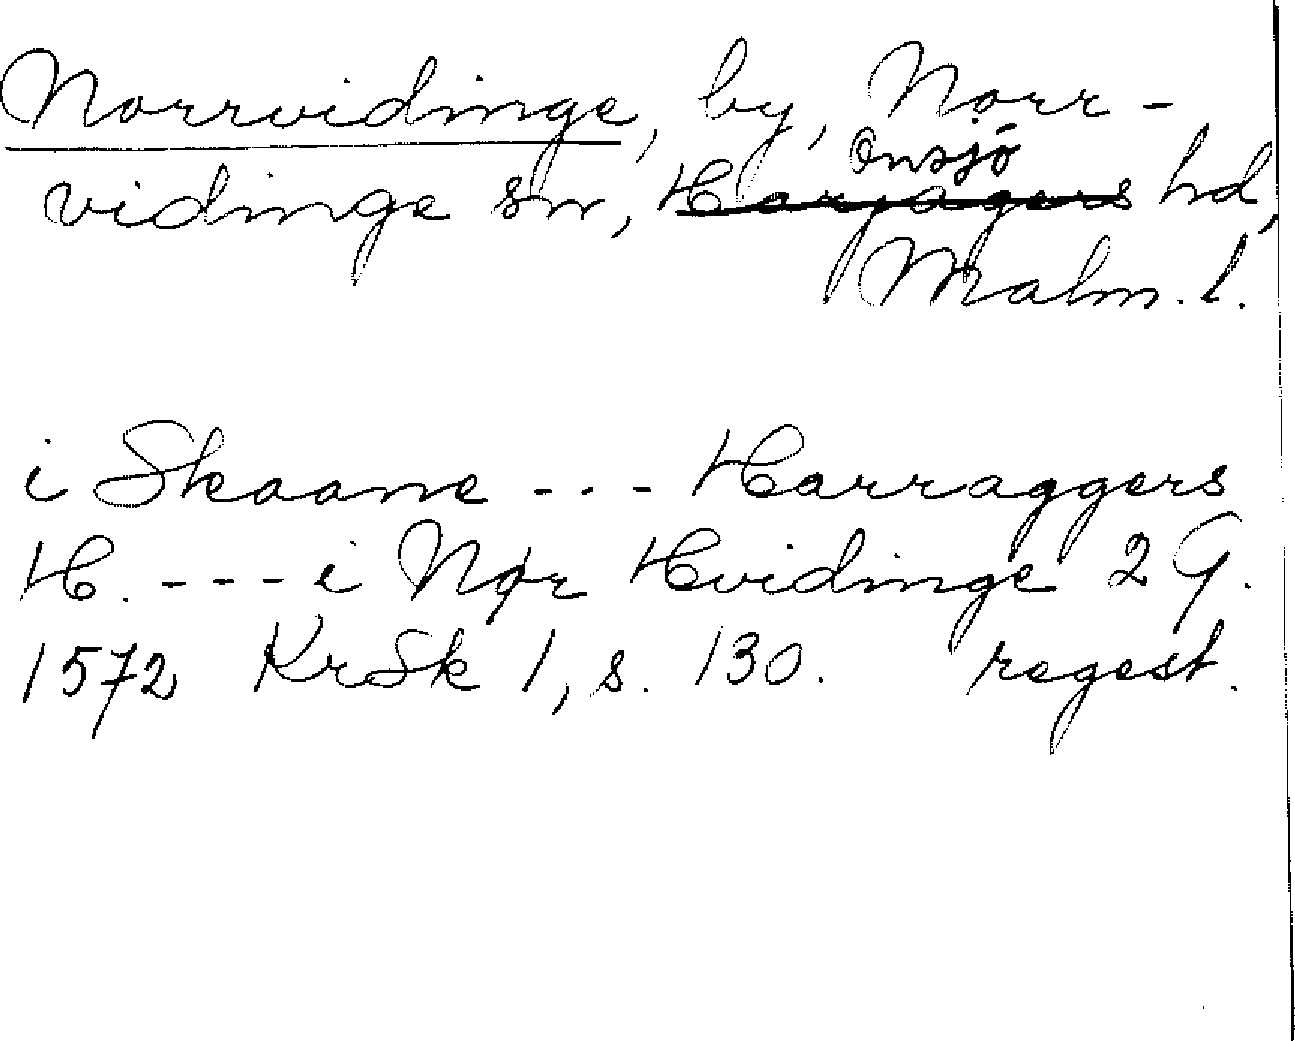 Norrvidinge, by, Norr-
Onsjö
vidinge sn, Harjagers hd,
Malm. l.
i Skaane --- Harraggers
H. --- i Nør Hvidinge 2 G.
1572 KrSk 1, s. 130. regest.